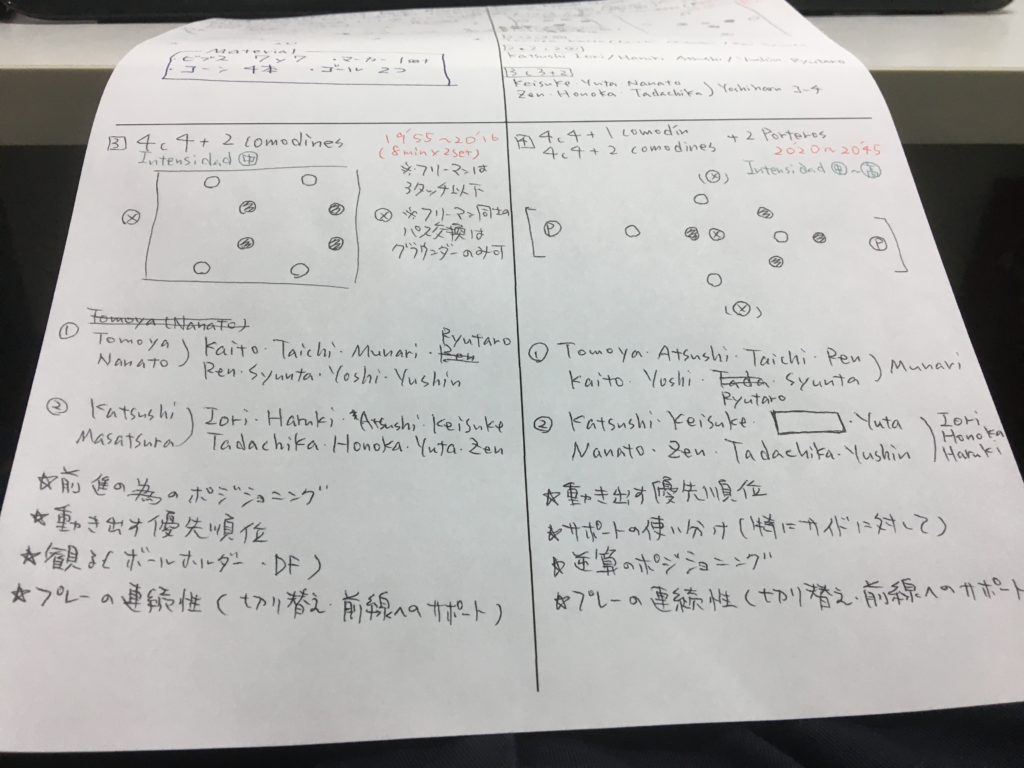 Material
ビブス 7×7 ・マーカー 1set
・コーン 4本 ・ゴール 2つ
Katsushi Iori / Haruki Atsushi /
3c3+2
Keisuke Yuta Nanato
Zen・Honoka・Tadachika
Yoshiharu 3-4
3 4c4+2 comodines
Intensidad 中
19'55~20'16
(8min×2set)
※フリーマンは
3タッチ以下
※フリーマン同士の
パス交換は
グラウンダーのみ可
X
X
① Tomoya (Nanato)
Tomoya
Nanato
Kaito・Taichi・Munari・Ren
Ryutaro
Ren・Syunta・Yoshi・Yushin
② Katsushi
Masatsura
Iori・Haruki・*Atsushi・Keisuke
Tadachika・Honoka・Yuta・Zen
☆前進の為のポジショニング
☆動き出す優先順位
☆観る(ボールホルダー・DF)
☆プレーの連続性(切り替え・前線へのサポート)
4 4c4+1 comodín
4c4+2 comodines
+2 Porteros
20'20~20'45
Intensidad 中~高
(X)
P
X
P
(X)
① Tomoya・Atsushi・Taichi・Ren
Kaito・Yoshi・Tada・Syunta
Ryutaro
Munari
② Katsushi・Keisuke・ ・Yuta
Nanato・Zen・Tadachika・Yushin
Iori
Honoka
Haruki
☆動き出す優先順位
☆サポートの使い分け(特にサイドに対して)
☆逆算のポジショニング
☆プレーの連続性(切り替え・前線へのサポート